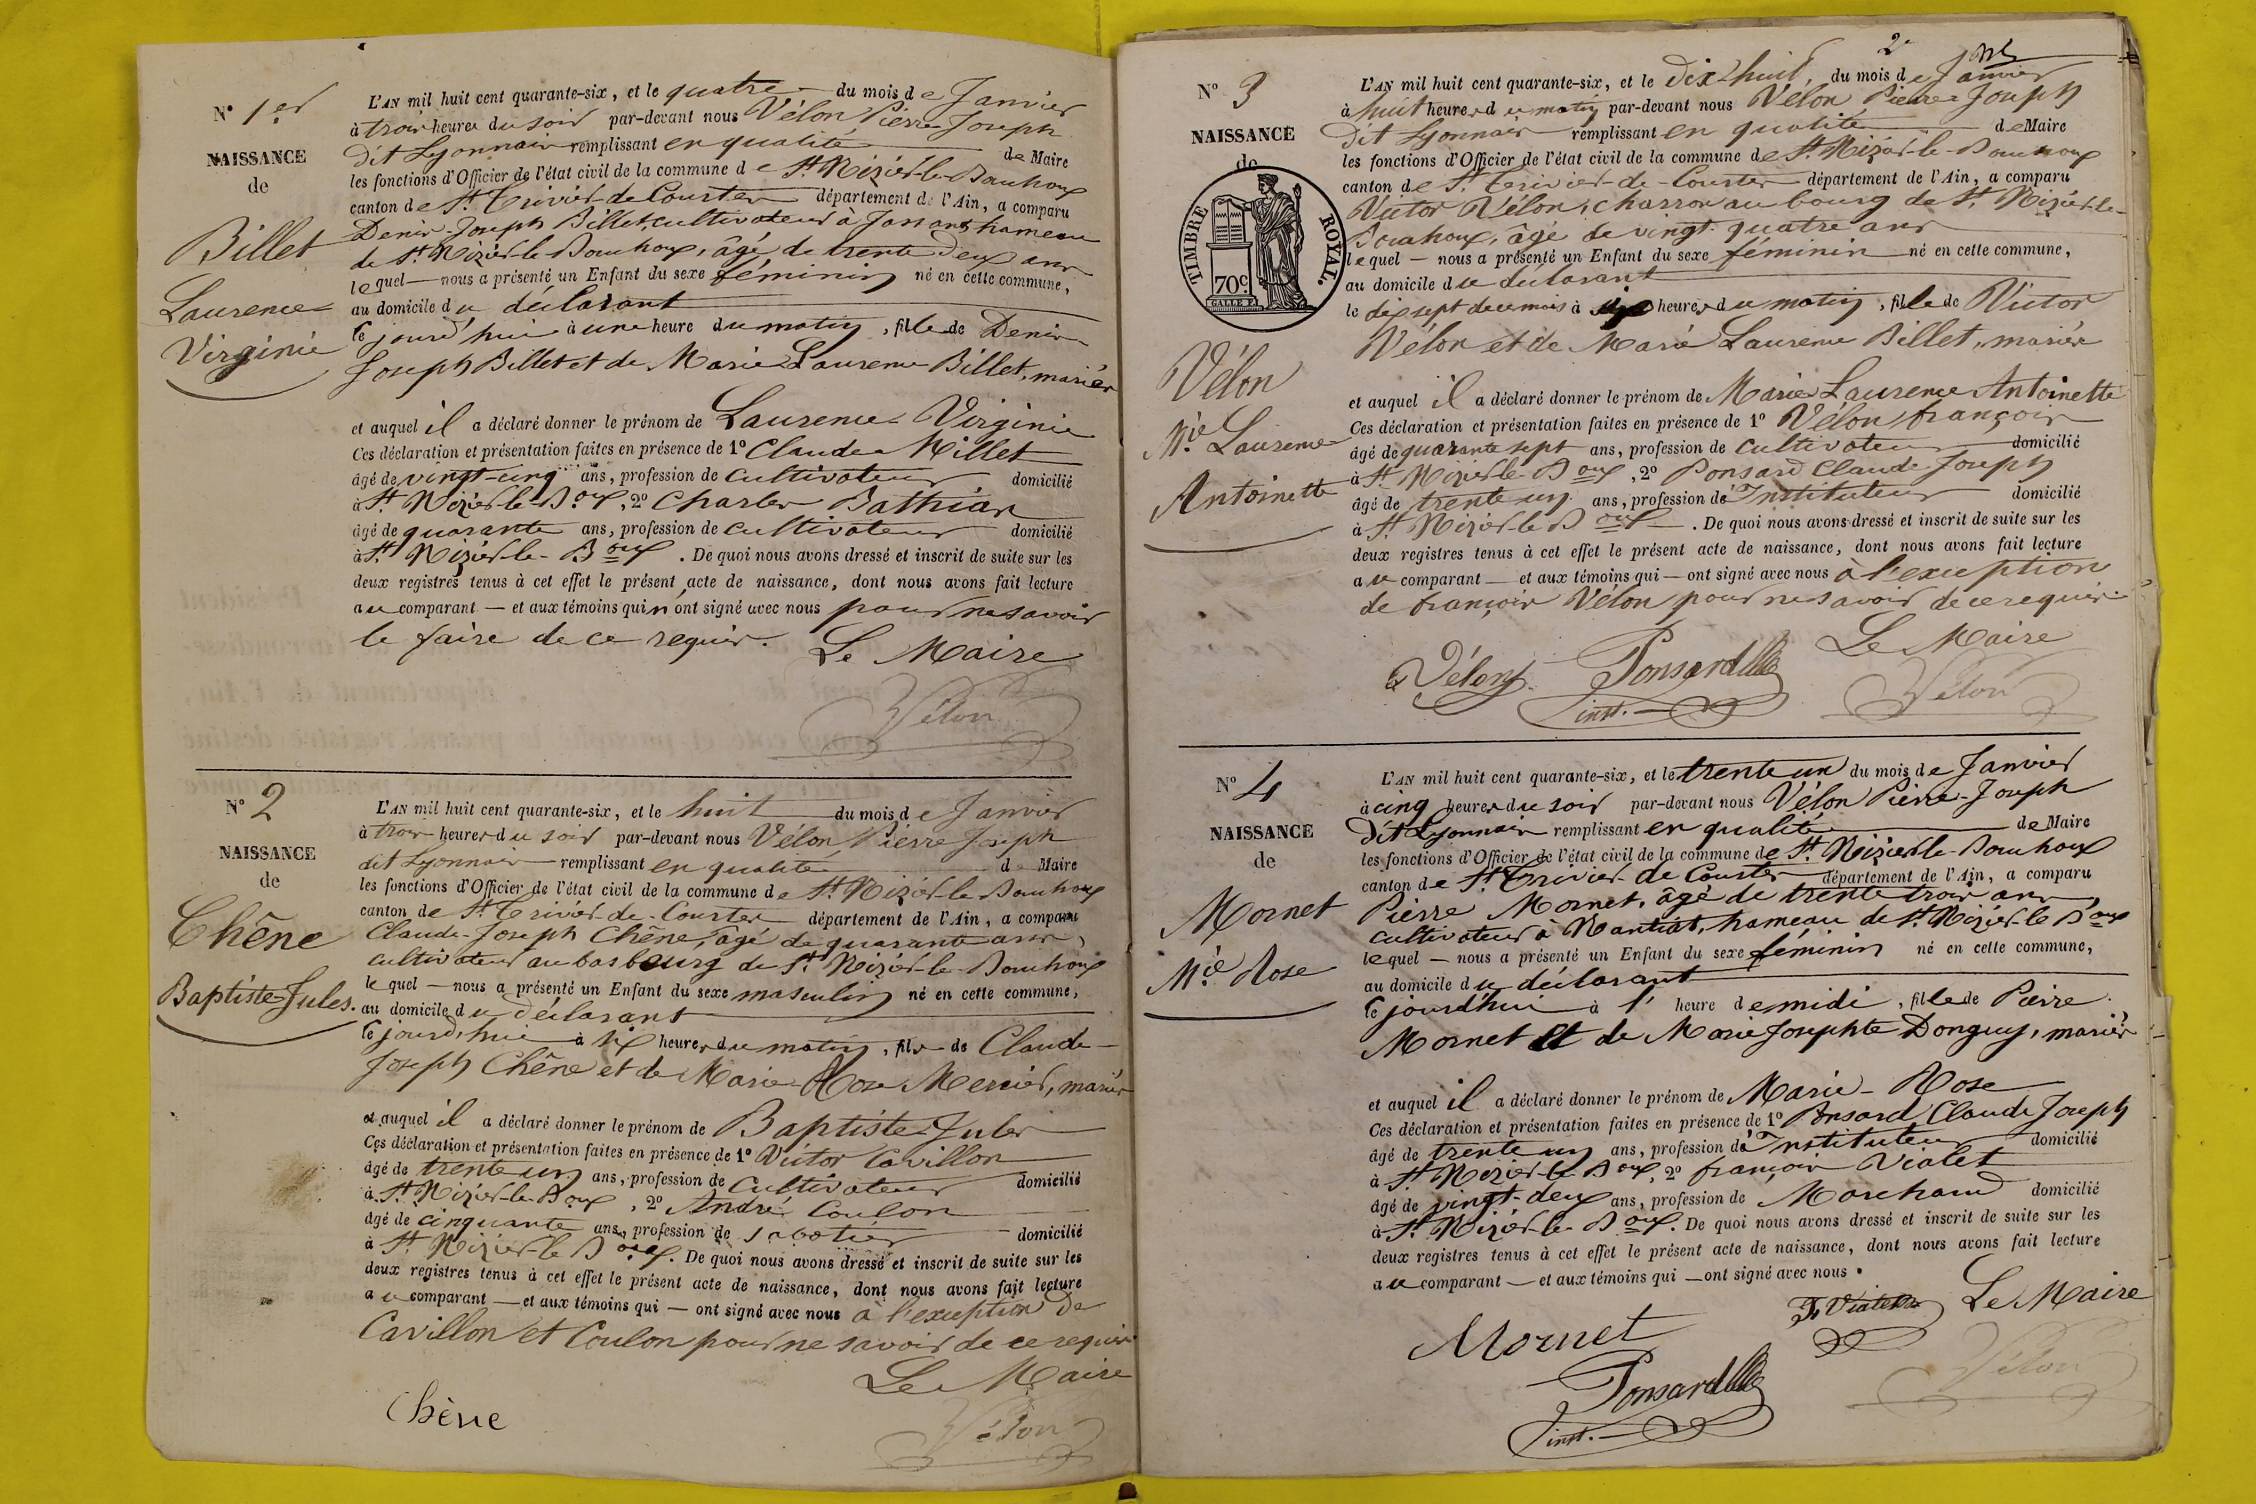 N° 1er
NAISSANCE
de
Billet
Laurence
Virginie
L'AN mil huit cent quarante-six, et le quatre du mois de Janvier
à trois heures du soir par-devant nous Vélon Pierre Joseph
dit Lyonnais remplissant en qualité de Maire
les fonctions d'Officier de l'état civil de la commune de St. Nizier-le-Bouchoux
canton de St. Trivier-de-Courtes département de l'Ain, a comparu
Denis-Joseph Billet, cultivateur à hameau
de St. Nizier-le-Bouchoux, âgé de trente deux ans
lequel — nous a présenté un Enfant du sexe féminin né en cette commune,
au domicile du déclarant
ce jourd'hui à une heure du matin, fille de Denis
Joseph Billet et de Marie Laurence Billet, mariés
et auquel il a déclaré donner le prénom de Laurence Virginie
Ces déclaration et présentation faites en présence de 1° Claude Millet
âgé de vingt-cinq ans, profession de cultivateur domicilié
à St. Nizier-le-Boux, 2° Charles Bathian
âgé de quarante ans, profession de cultivateur domicilié
à St. Nizier-le-Boux. De quoi nous avons dressé et inscrit de suite sur les
deux registres tenus à cet effet le présent acte de naissance, dont nous avons fait lecture
au comparant — et aux témoins qui n'ont signé avec nous pour ne savoir
le faire de ce requis. Le Maire
Vélon
N° 2
NAISSANCE
de
Chêne
Baptiste Jules.
L'AN mil huit cent quarante-six, et le huit du mois de Janvier
à trois heures du soir par-devant nous Vélon Pierre Joseph
dit Lyonnais remplissant en qualité de Maire
les fonctions d'Officier de l'état civil de la commune de St. Nizier-le-Bouchoux
canton de St. Trivier-de-Courtes département de l'Ain, a comparu
Claude-Joseph Chêne, âgé de quarante ans,
cultivateur au bas bourg de St. Nizier-le-Bouchoux
lequel — nous a présenté un Enfant du sexe masculin né en cette commune,
au domicile du déclarant
ce jourd'hui à six heures du matin, fils de Claude
Joseph Chêne et de Marie Rose Mercier, mariés
et auquel il a déclaré donner le prénom de Baptiste Jules
Ces déclaration et présentation faites en présence de 1° Victor Cavillon
âgé de trente un ans, profession de cultivateur domicilié
à St. Nizier-le-Boux, 2° André Coulon
âgé de cinquante ans, profession de sabotier domicilié
à St. Nizier-le-Boux. De quoi nous avons dressé et inscrit de suite sur les
deux registres tenus à cet effet le présent acte de naissance, dont nous avons fait lecture
au comparant — et aux témoins qui — ont signé avec nous à l'exception de
Cavillon et Coulon pour ne savoir de ce requis
Le Maire
Chêne
Vélon
2e
N° 3
NAISSANCE
de
TIMBRE ROYAL.
70c
GALLE F.
Vélon
Mie. Laurence
Antoinette
L'AN mil huit cent quarante-six, et le dix-huit, du mois de Janvier
à huit heures du matin par-devant nous Vélon Pierre Joseph
dit Lyonnais remplissant en qualité de Maire
les fonctions d'Officier de l'état civil de la commune de St. Nizier-le-Bouchoux
canton de St. Trivier-de-Courtes département de l'Ain, a comparu
Victor Vélon, charron au bourg de St. Nizier-le-
Bouchoux, âgé de vingt-quatre ans
lequel — nous a présenté un Enfant du sexe féminin né en cette commune,
au domicile du déclarant
le dix sept de ce mois à heures du matin, fille de Victor
Vélon et de Marie Laurence Billet, mariés
et auquel il a déclaré donner le prénom de Marie Laurence Antoinette
Ces déclaration et présentation faites en présence de 1° Vélon françois
âgé de quarante sept ans, profession de cultivateur domicilié
à St. Nizier-le-Boux, 2° Ponsard Claude Joseph
âgé de trente un ans, profession de Instituteur domicilié
à St. Nizier-le-Boux. De quoi nous avons dressé et inscrit de suite sur les
deux registres tenus à cet effet le présent acte de naissance, dont nous avons fait lecture
au comparant — et aux témoins qui — ont signé avec nous à l'exception
de françois Vélon pour ne savoir de ce requis.
Le Maire
Vélon Ponsard Vélon
inst.
N° 4
NAISSANCE
de
Mornet
Mie. Rose
L'AN mil huit cent quarante-six, et le trente un du mois de Janvier
à cinq heures du soir par-devant nous Vélon Pierre-Joseph
dit Lyonnais remplissant en qualité de Maire
les fonctions d'Officier de l'état civil de la commune de St. Nizier-le-Bouchoux
canton de St. Trivier-de-Courtes département de l'Ain, a comparu
Pierre Mornet, âgé de trente trois ans,
cultivateur à Nantiat, hameau de St. Nizier-le-Boux
lequel — nous a présenté un Enfant du sexe féminin né en cette commune,
au domicile du déclarant
ce jourd'hui à 1 heure de midi, fille de Pierre
Mornet et de Marie Josephte Donguy, mariés
et auquel il a déclaré donner le prénom de Marie-Rose
Ces déclaration et présentation faites en présence de 1° Ponsard Claude Joseph
âgé de trente un ans, profession de Instituteur domicilié
à St. Nizier-le-Boux, 2° françois Vialet
âgé de vingt-deux ans, profession de Marchand domicilié
à St. Nizier-le-Boux. De quoi nous avons dressé et inscrit de suite sur les
deux registres tenus à cet effet le présent acte de naissance, dont nous avons fait lecture
au comparant — et aux témoins qui — ont signé avec nous.
F. Vialet Le Maire
Mornet
Vélon
Ponsard
inst.